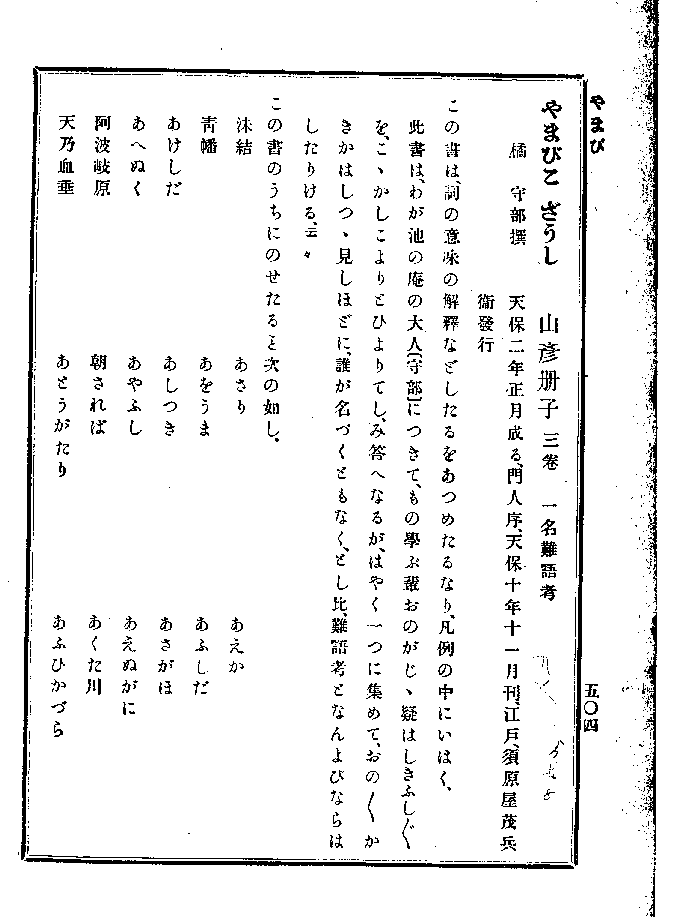 やまび
五〇四
やまびこ ざうし 山彦册子 三卷 一名難語考
橘 守部撰 天保二年正月成る、門人序、天保十年十一月刊、江戸、須原屋茂兵
衞發行
この書は、詞の意味の解釋などしたるをあつめたるなり、凡例の中にいはく、
此書は、わが池の庵の大人(守部)につきて、もの學ぶ輩おのがじゝ疑はしきふし〴〵
を、こゝかしこよりとひよりてし、み答へなるが、はやく一つに集めて、おの〳〵か
きかはしつゝ見しほどに、誰が名づくともなく、とし比、難語考となんよびならは
したりける、云々
この書のうちにのせたること次の如し。
沫結 あさり あえか
青幡 あをうま あふしだ
あけしだ あしつき あさがほ
あへぬく あやふし あえぬがに
阿波岐原 朝されば あくた川
天乃血垂 あとうがたり あふひかづら